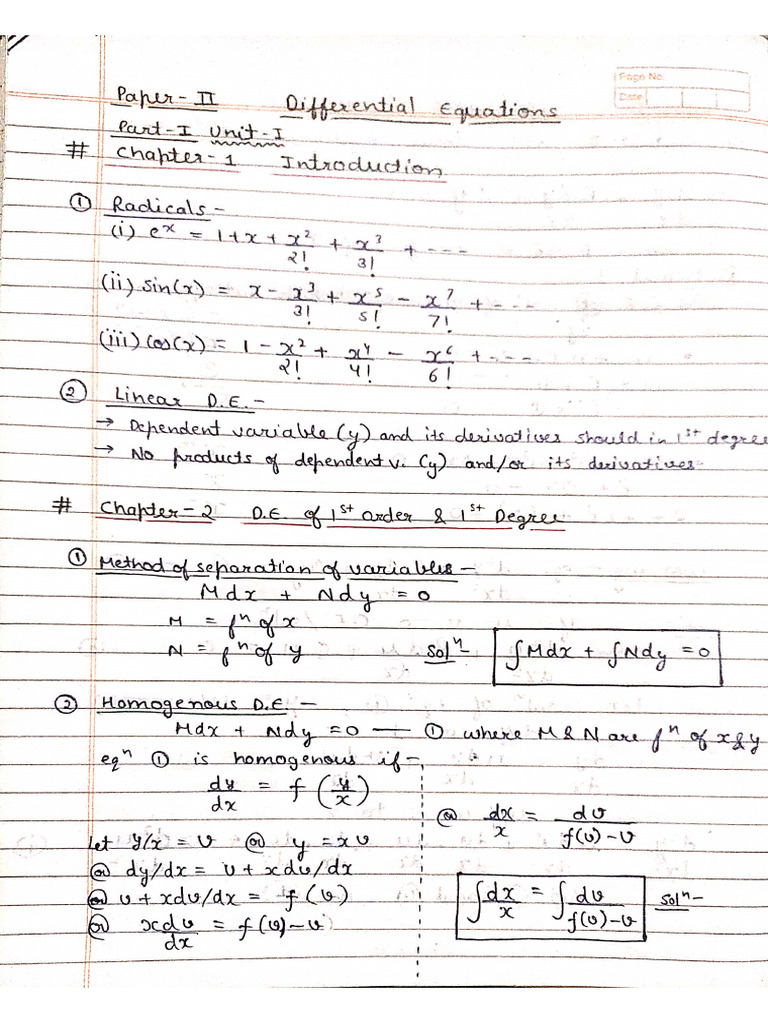 Page No.
Date
Paper-II Differential Equations
Part-I Unit-I
# Chapter-1 Introduction
① Radicals -
(i) e^x = 1+x+x^2/2! + x^3/3! + ---
(ii) sin(x) = x - x^3/3! + x^5/5! - x^7/7! + ---
(iii) cos(x) = 1 - x^2/2! + x^4/4! - x^6/6! + ---
② Linear D.E. -
→ Dependent variable (y) and its derivatives should in 1st degree
→ No products of dependent v. (y) and/or its derivatives
# Chapter-2 D.E. of 1st order & 1st Degree
① Method of separation of variables -
Mdx + Ndy = 0
M = f^n of x
N = f^n of y sol^n ∫Mdx + ∫Ndy = 0
② Homogenous D.E. -
Mdx + Ndy = 0 — ① where M & N are f^n of x & y
eq^n ① is homogenous if -
dy/dx = f(y/x)
Let y/x = v or y = xv
or dy/dx = v + xdv/dx
or v + xdv/dx = f(v)
or xdv/dx = f(v) - v
or dx/x = dv/f(v)-v
∫dx/x = ∫dv/f(v)-v sol^n -